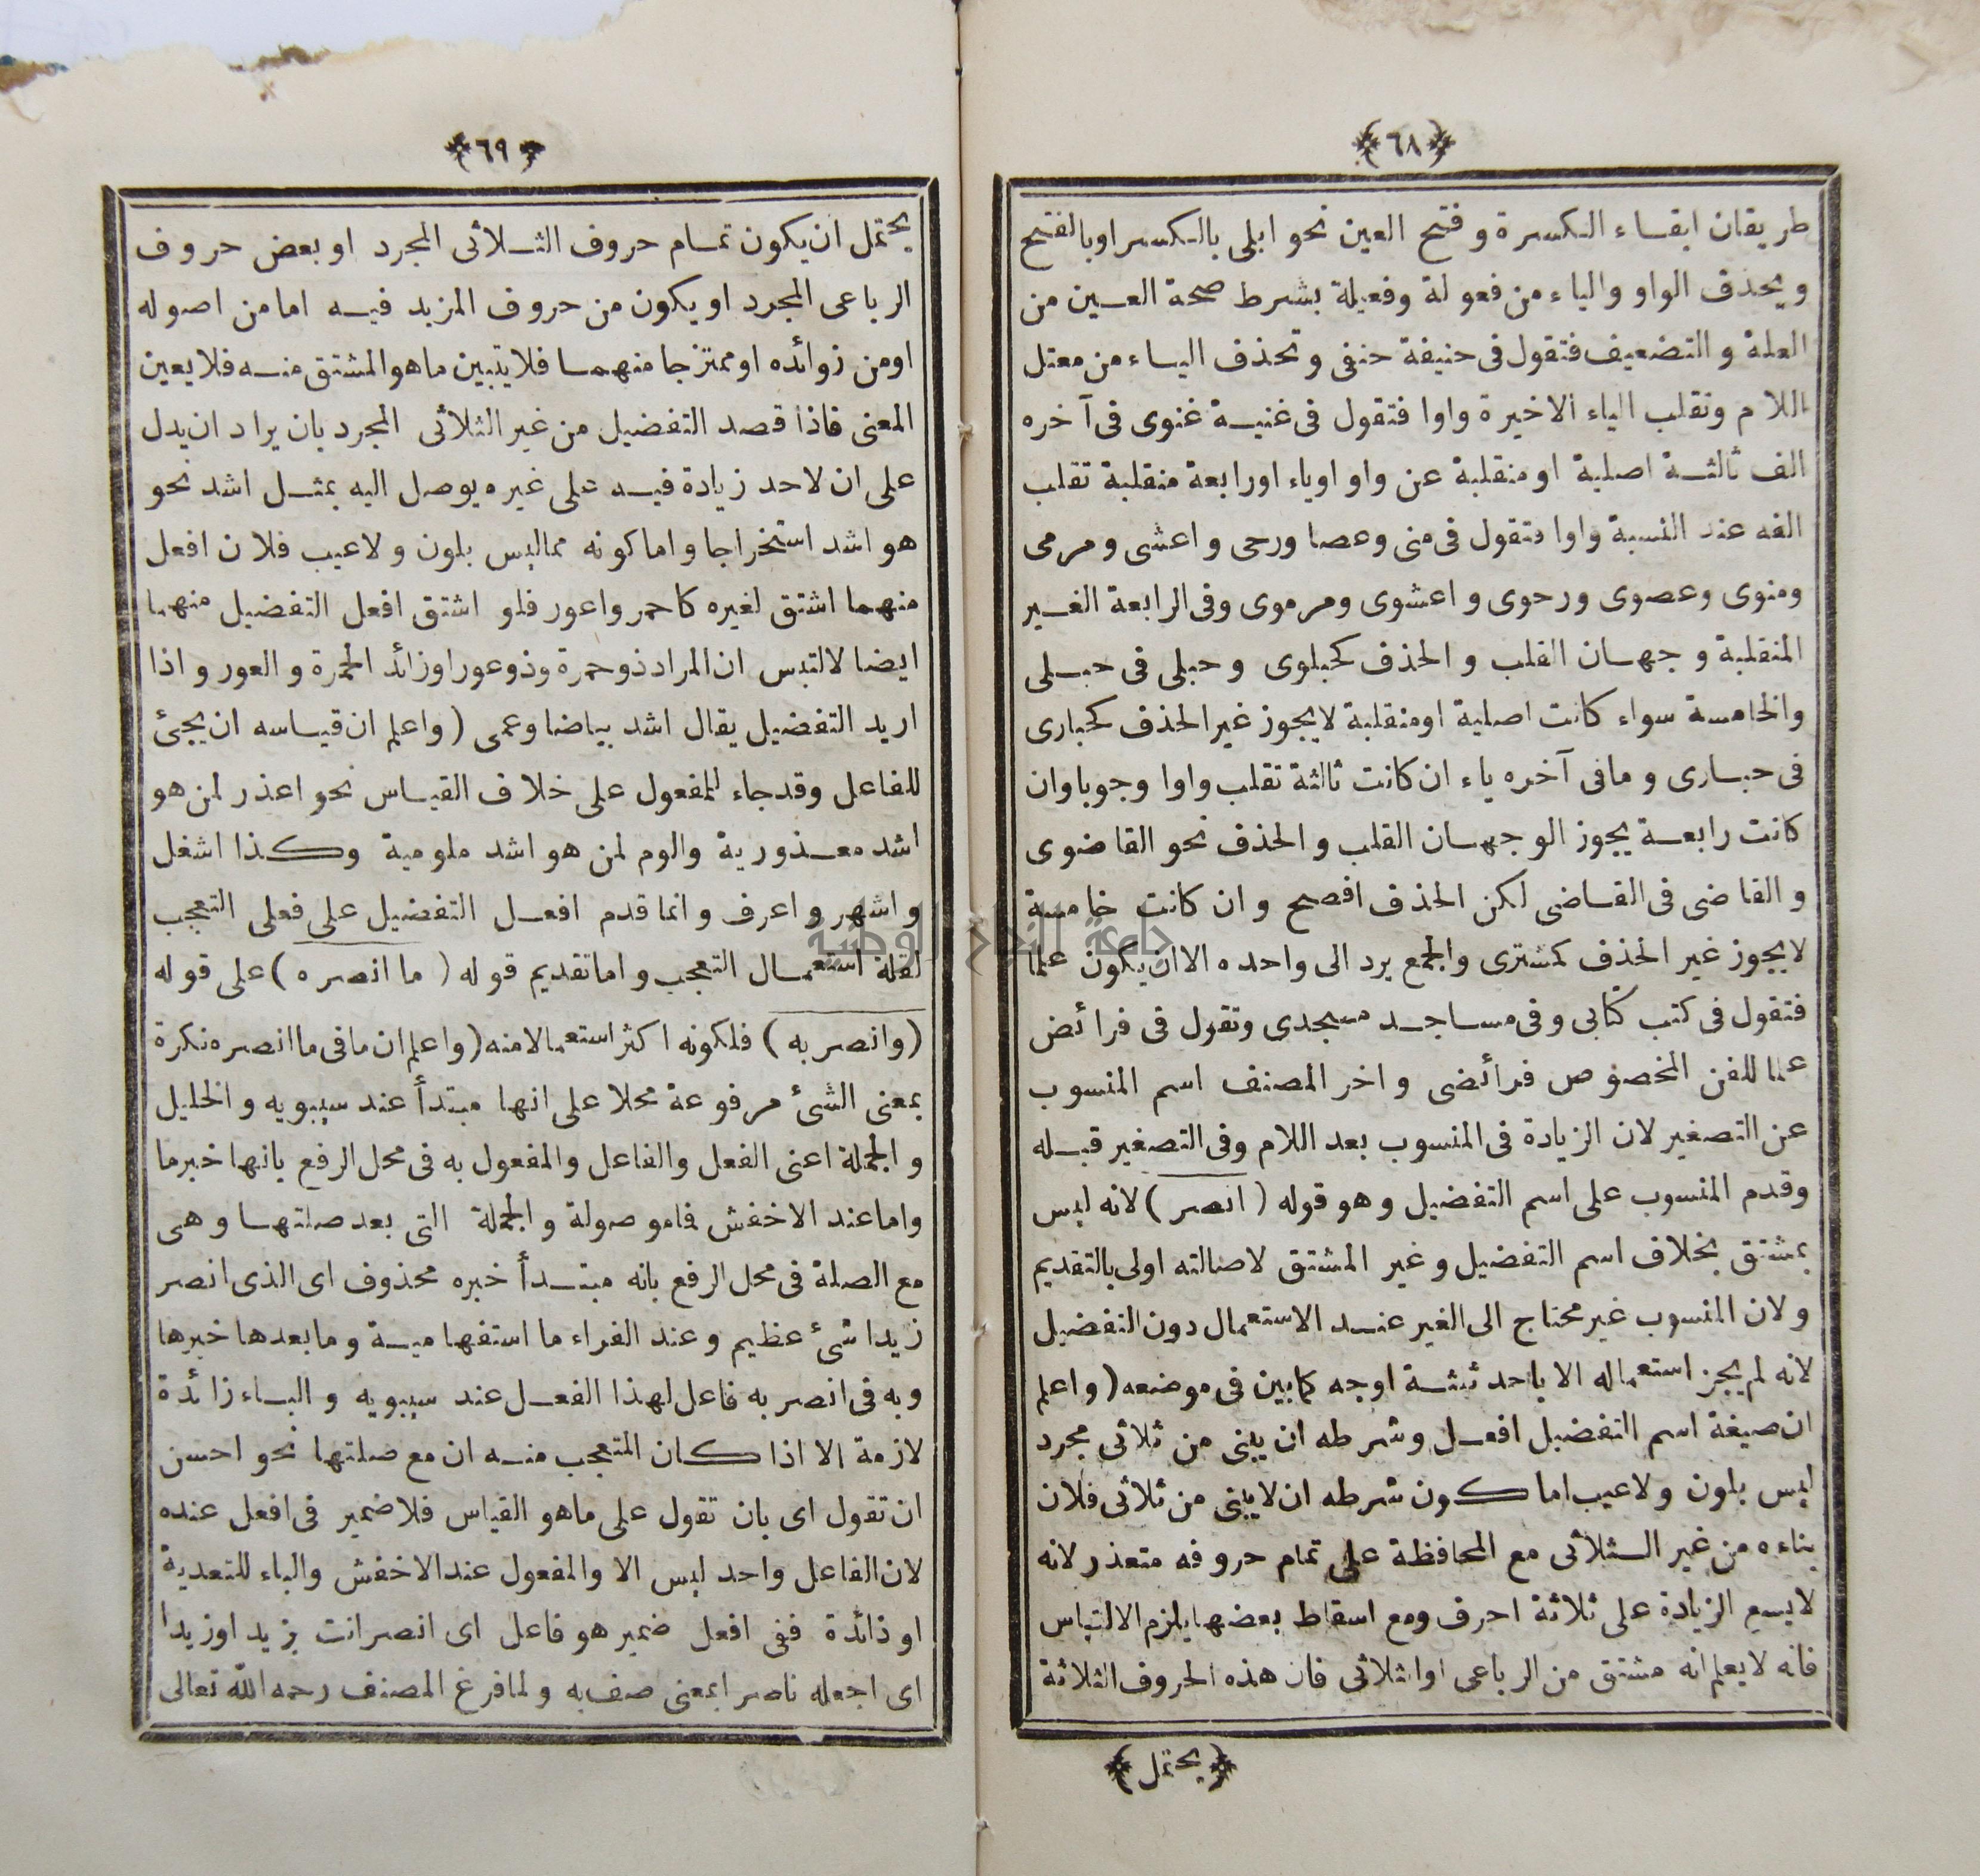 ﴿٦٨﴾
طريقان ابقاء الكسرة وفتح العين نحو ابلى بالكسر اوبالفتح
ويحذف الواو والياء من فعولة وفعيلة بشرط صحة العين من
العلة والتضعيف فتقول فى حنيفة حنفى وتحذف الياء من معتل
اللام وتقلب الياء الاخيرة واوا فتقول فى غنية غنوى فى آخره
الف ثالثة اصلية او منقلبة عن واو اوياء اورابعة منقلبة تقلب
الفه عند النسبة واوا فتقول فى منى وعصا ورحى واعشى ومرمى
ومنوى وعصوى ورحوى واعشوى ومرموى وفى الرابعة الغير
المنقلبة وجهان القلب والحذف كحبلوى وحبلى فى حبلى
والخامسة سواء كانت اصلية اومنقلبة لايجوز غير الحذف كحبارى
فى حبارى ومافى آخره ياء ان كانت ثالثة تقلب واوا وجوبا وان
كانت رابعة يجوز الوجهان القلب والحذف نحو القاضوى
والقاضى فى القاضى لكن الحذف افصح وان كانت خامسة
لايجوز غير الحذف كمشترى والجمع يرد الى واحده الا ان يكون علما
فتقول فى كتب كتابى وفى مساجد مسجدى وتقول فى فرائض
علما للفن المخصوص فرائضى واخر المصنف اسم المنسوب
عن التصغير لان الزيادة فى المنسوب بعد اللام وفى التصغير قبله
وقدم المنسوب على اسم التفضيل وهو قوله (انصر) لانه ليس
بمشتق بخلاف اسم التفضيل وغير المشتق لاصالته اولى بالتقديم
ولان المنسوب غير محتاج الى الغير عند الاستعمال دون التفضيل
لانه لم يجز استعماله الا باحد ثلثة اوجه كمابين فى موضعه (واعلم
ان صيغة اسم التفضيل افعل وشرطه ان يبنى من ثلاثى مجرد
ليس بلون ولاعيب اما كون شرطه ان لا يبنى من ثلاثى فلان
بناءه من غير الثلاثى مع المحافظة على تمام حروفه متعذر لانه
لايسع الزيادة على ثلاثة احرف ومع اسقاط بعضها يلزم الالتباس
فانه لايعلم انه مشتق من الرباعى اوالثلاثى فان هذه الحروف الثلاثة
﴿يحتمل﴾
﴿٦٩﴾
يحتمل ان يكون تمام حروف الثلاثى المجرد اوبعض حروف
الرباعى المجرد اويكون من حروف المزيد فيه امامن اصوله
اومن زوائده اوممتزجا منهما فلا يتبين ماهو المشتق منه فلا يعين
المعنى فاذا قصد التفضيل من غير الثلاثى المجرد بان يراد ان يدل
على ان لاحد زيادة فيه على غيره يوصل اليه بمثل اشد نحو
هو اشد استخراجا واما كونه مماليس بلون ولاعيب فلان افعل
منهما اشتق لغيره كاحمر واعور فلو اشتق افعل التفضيل منهما
ايضا لالتبس ان المراد ذوحمرة وذوعور اوزائد الحمرة والعور واذا
اريد التفضيل يقال اشد بياضا وعمى (واعلم ان قياسه ان يجئ
للفاعل وقدجاء للمفعول على خلاف القياس نحو اعذر لمن هو
اشد معذورية والوم لمن هو اشد ملومية وكذا اشغل
واشهر واعرف وانما قدم افعل التفضيل على فعلى التعجب
لقلة استعمال التعجب واما تقديم قوله (ما انصره) على قوله
(وانصر به) فلكونه اكثر استعمالا منه (واعلم ان مافى ما انصره نكرة
بمعنى الشئ مرفوعة محلا على انها مبتدأ عند سيبويه والخليل
والجملة اعنى الفعل والفاعل والمفعول به فى محل الرفع بانها خبرما
واما عند الاخفش فاموصولة والجملة التى بعد صلتها وهى
مع الصلة فى محل الرفع بانه مبتدأ خبره محذوف اى الذى انصر
زيدا شئ عظيم وعند الفراء ما استفهامية ومابعدها خبرها
وبه فى انصر به فاعل لهذا الفعل عند سيبويه والباء زائدة
لازمة الا اذا كان المتعجب منه ان مع صلتها نحو احسن
ان تقول اى بان تقول على ماهو القياس فلاضمير فى افعل عنده
لان الفاعل واحد ليس الا والمفعول عند الاخفش والباء للتعدية
اوزائدة ففى افعل ضمير هو فاعل اى انصر انت بزيد اوزيدا
اى اجعله ناصرا بمعنى صف به ولمافرغ المصنف رحمه الله تعالى
جامعة النجاح الوطنية